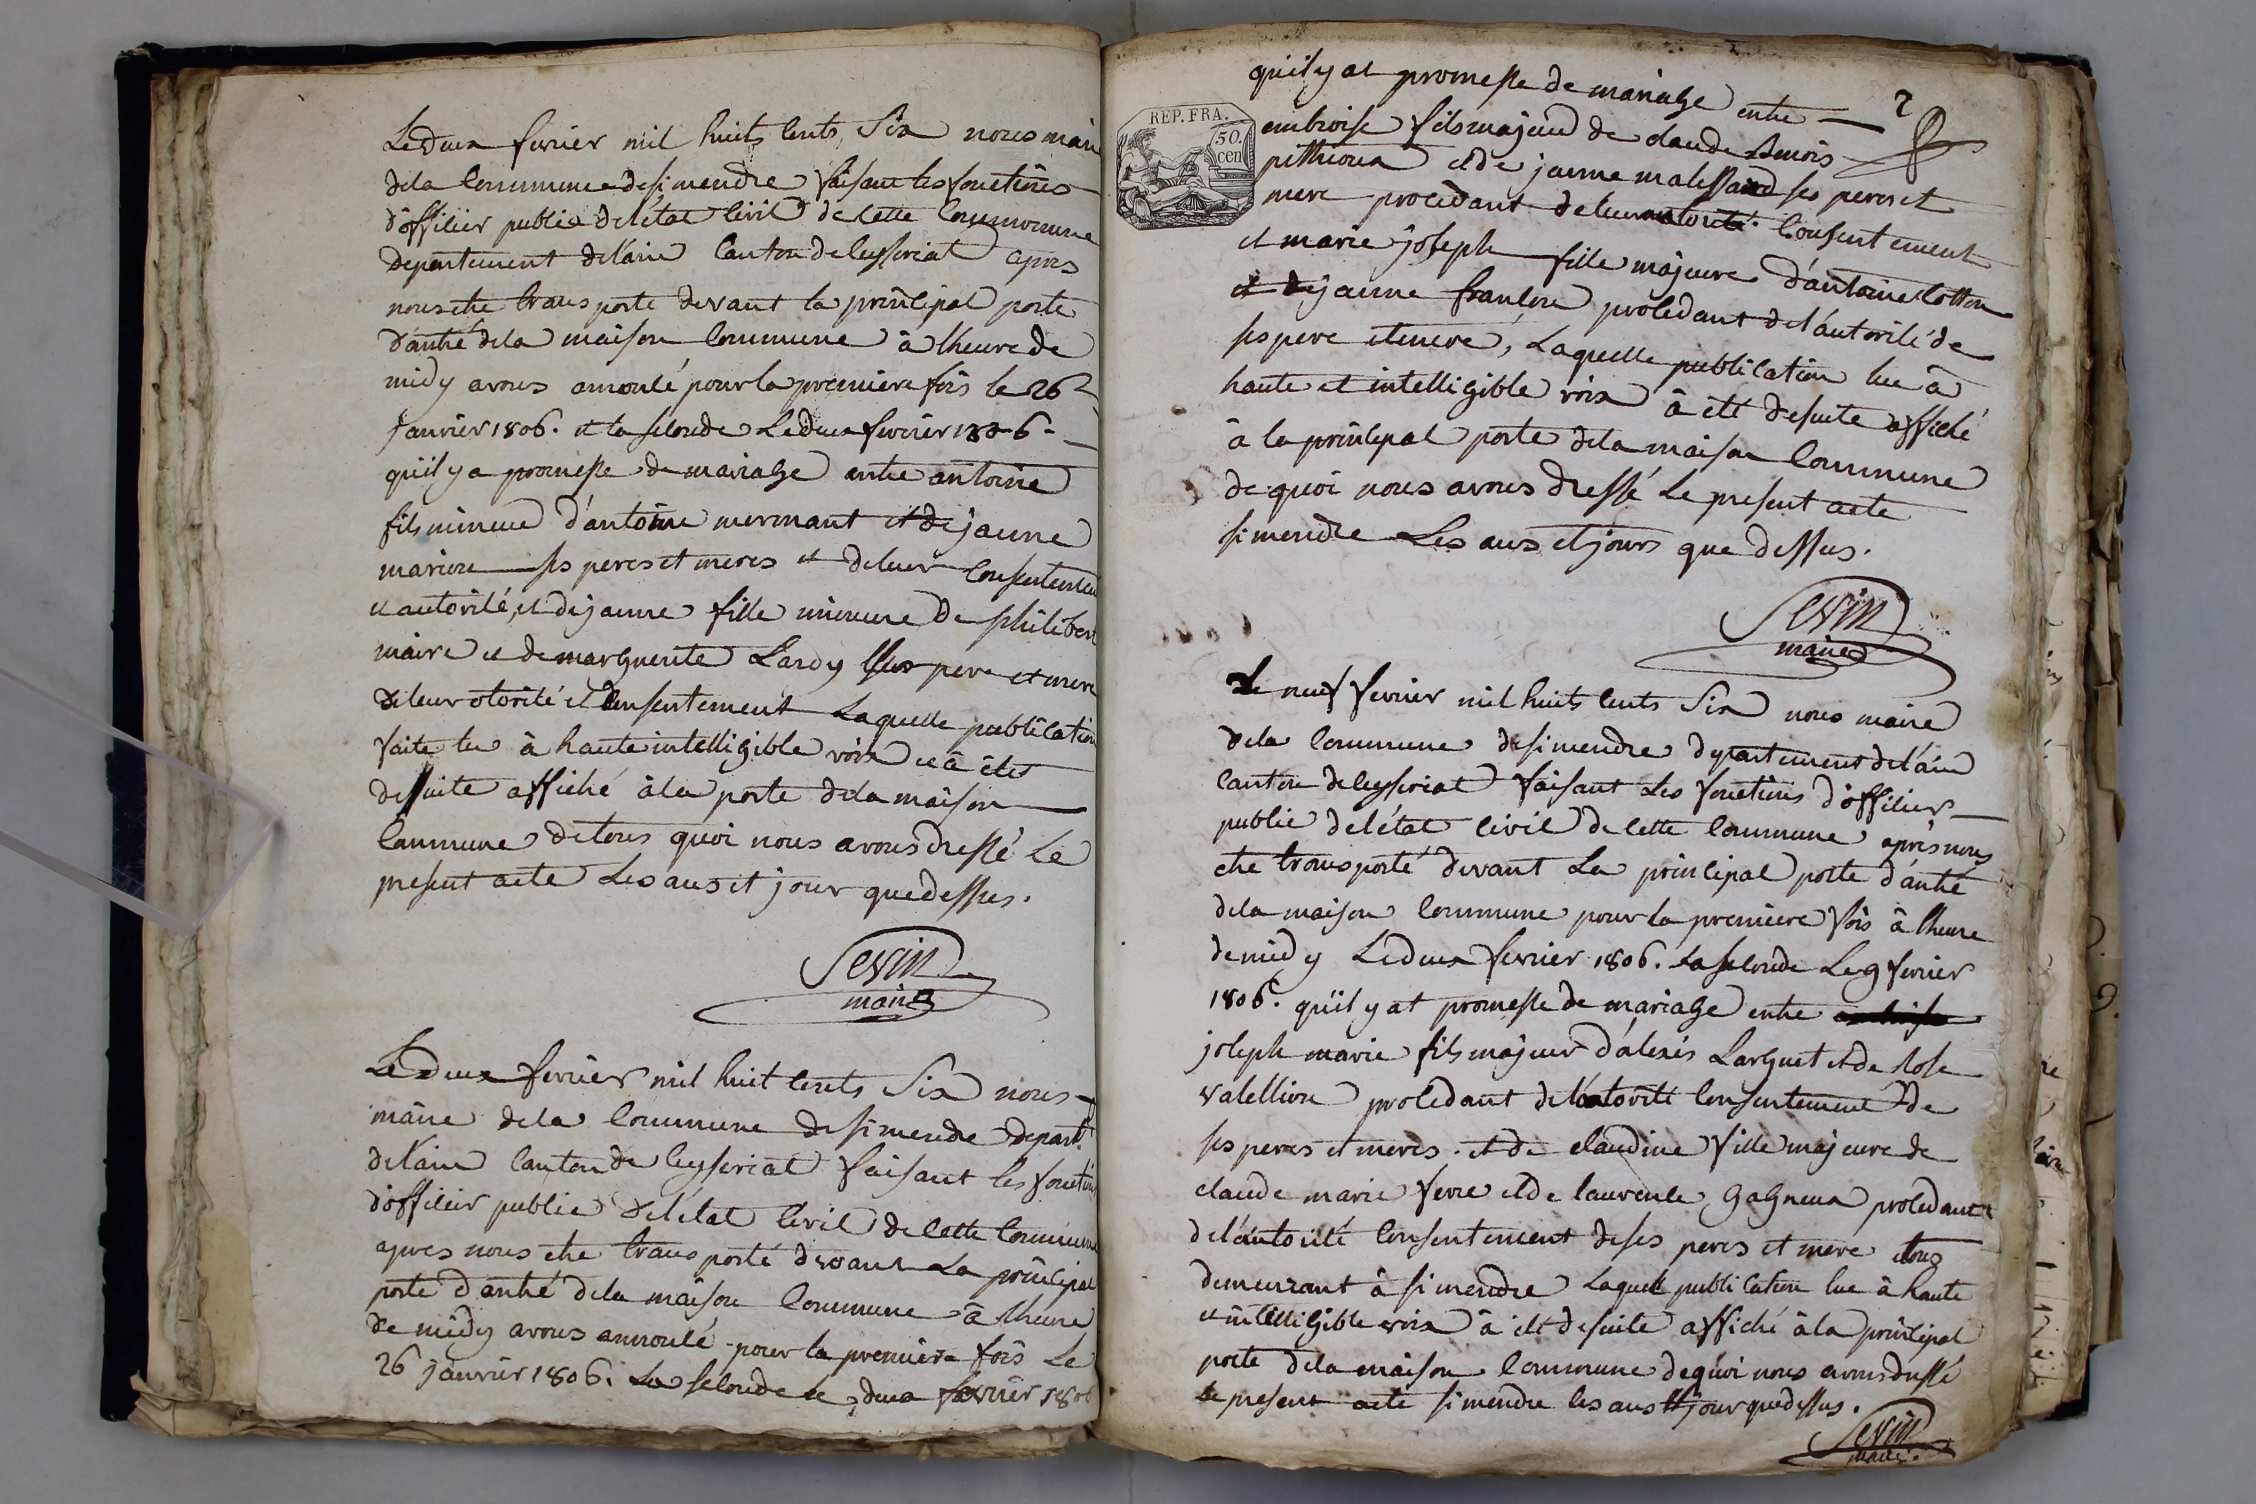 Le deux fevrier mil huits cents six nous maire
dela Commune desimendre faisant les fonctions
d'officier public del'état civil de cette Commune
departement de l'ain Canton deceyseriat apres
nous etre transporté devant la principal porte
d'antré dela maison Commune à lheure de
midy avons anoncé pour la premiere fois le 26
janvier 1806. et la seconde Le deux fevrier 1806.
qu'il y a promesse de mariage entre antoine
fils mineur d'antoine mermant et de jeanne
mariere ses peres et meres et deleur Consentement
et autorité, et de janne fille mineure De philibert
maire et de marguerite Lardy ses pere et mere
deleur otorité et Consentement Laquelle publication
faite lu à haute intelligible voix et à été
desuite affiché àla porte dela maison
Commune detous quoi nous avons dressé Le
present acte Les ans et jour que dessus.
Sevin
maire
Le deux fevrier mil huit cents Six nous
maire dela Commune de simendre depart.
del'ain Canton de Ceyseriat faisant les fonctions
d'officier public del'état Civil de cette Commune
apres nous etre transporté devant La principal
porte d'antré dela maison Commune à lheure
de midy avons annoncé pour la premiere fois Le
26 janvier 1806. La seconde le deux fevrier 1806
2
qu'il y at promesse de mariage entre
REP. FRA.
50.
cen
embroise fils majeur de claude
et de janne ses peres et
mere procedant deleur autorité. Consentement
et marie joseph fille majeure d'antoine Cotton
et de janne procedant del'autorité de
ses pere et mere, Laquelle publication lue à
haute et intelligible voix à été desuite affiché
à la principal porte dela maison Commune
de quoi nous avons dressé Le present acte
simendre Les ans et jours que dessus.
Sevin
maire
Le neuf fevrier mil huits cents Six nous maire
dela Commune desimendre departement del'ain
Canton deceyseriat faisant Les fonctions d'officier
public del'état civil de cette Commune apres nous
etre transporté devant La principal porte d'antré
dela maison Commune pour la premiere fois à lheure
demidy Le deux fevrier 1806. La seconde Le 9 fevrier
1806. qu'il y at promesse de mariage entre
joseph marie fils majeur d'alexis Larguet et de Rose
procedant del'autorité Consentement de
ses peres et meres. et de claudine fille majeure de
claude marie et de laurence gagneux procedant
del'autorité Consentement deses peres et mere tous
demeurant à simendre Laquel publication lue à haute
et intelligible voix à été desuite affiché àla principal
porte dela maison Commune dequoi nous avons dressé
Le present acte simendre les ans et jour que dessus.
Sevin
maire.